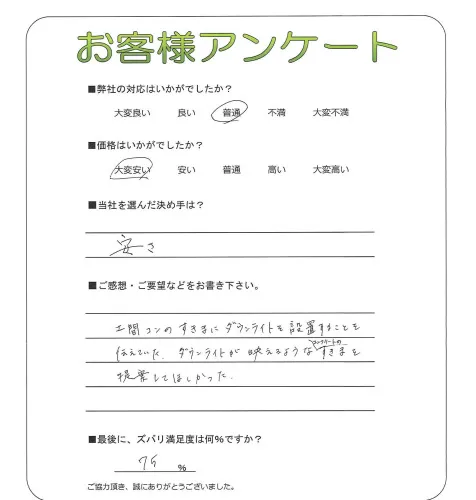 お客様アンケート
■弊社の対応はいかがでしたか？
大変良い 良い 普通 不満 大変不満
■価格はいかがでしたか？
大変安い 安い 普通 高い 大変高い
■当社を選んだ決め手は？
安さ
■ご感想・ご要望などをお書き下さい。
土間コンのすきまにダウンライトを設置することを
コンクリートの
伝えていた。ダウンライトが映えるようなすきまを
提案してほしかった。
■最後に、ズバリ満足度は何%ですか？
75 %
ご協力頂き、誠にありがとうございました。